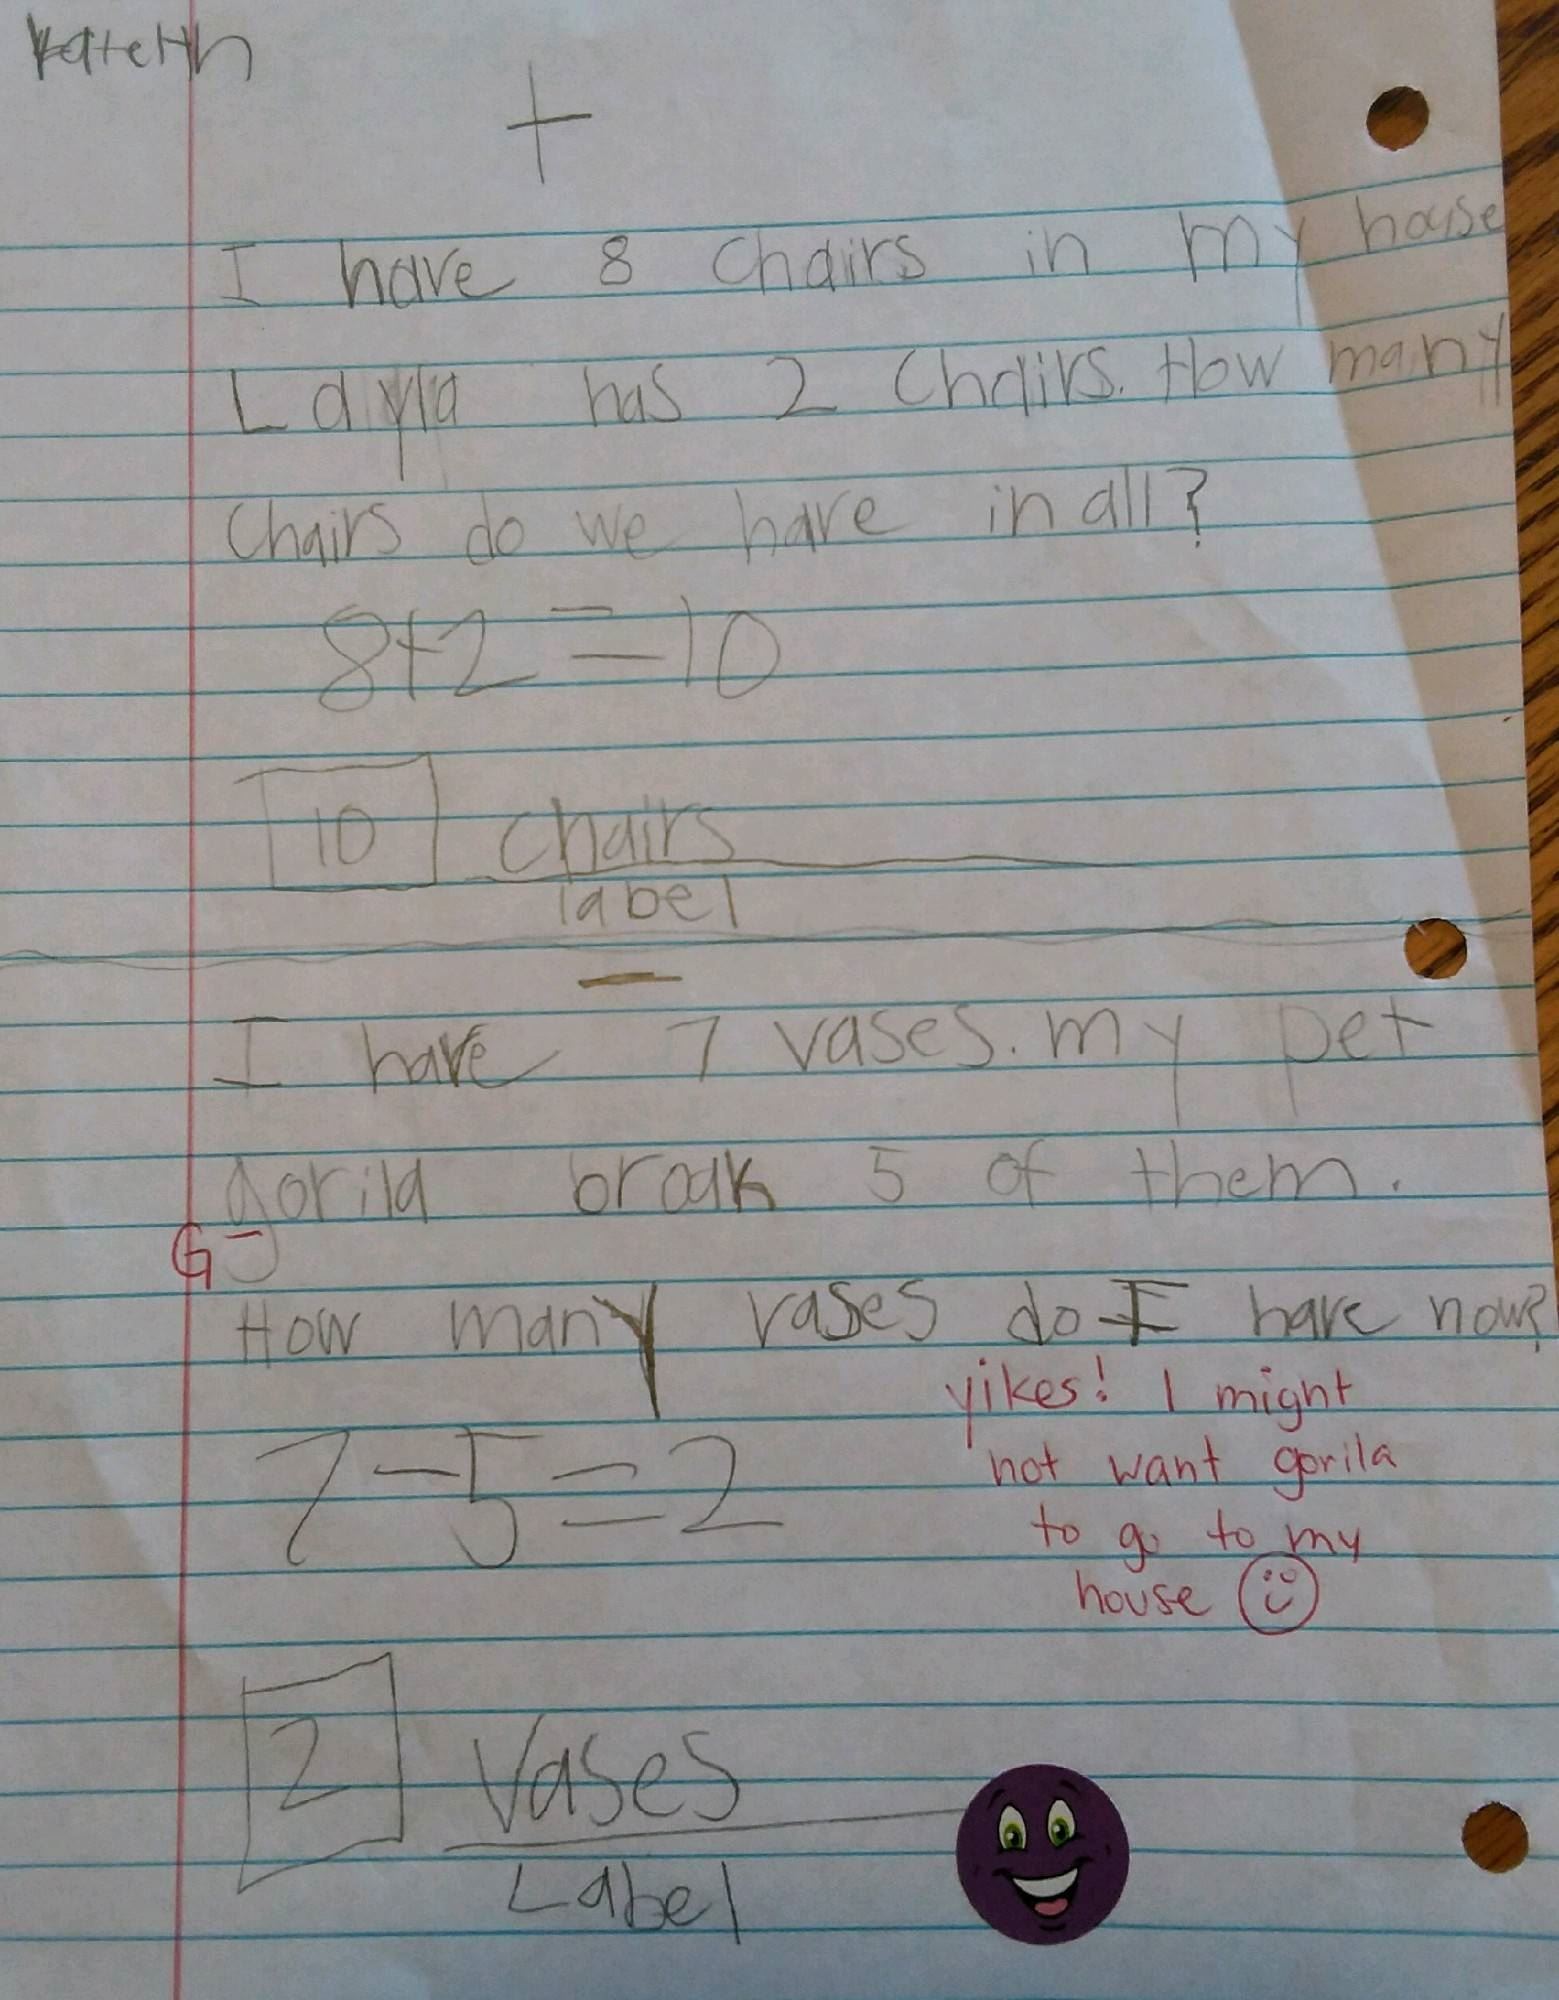 +
I have 8 Chairs in my house
Layla has 2 Chairs. How many
Chairs do we have in all?
8+2=10
10 Chairs
label
−
I have 7 vases. my pet
gorila break 5 of them.
G
How many vases do I have now?
yikes! I might
not want gorila
7-5=2
to go to my
house
2 Vases
Label